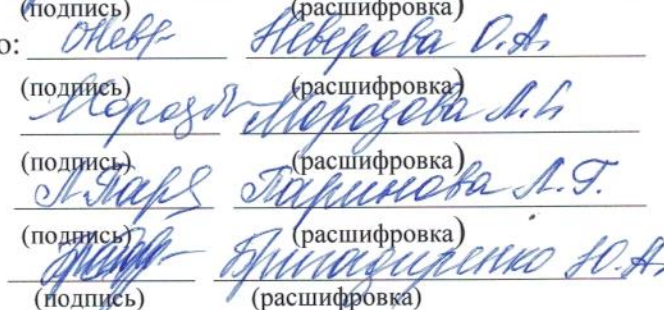 (подпись) (расшифровка)
о: ОНевр Неверова О.А.
(подпись) (расшифровка)
Мороз Морозова Л.
(подпись) (расшифровка)
Л.Пар Паринова Л.Г.
(подпись) (расшифровка)
Бригадиренко Ю.А.
(подпись) (расшифровка)